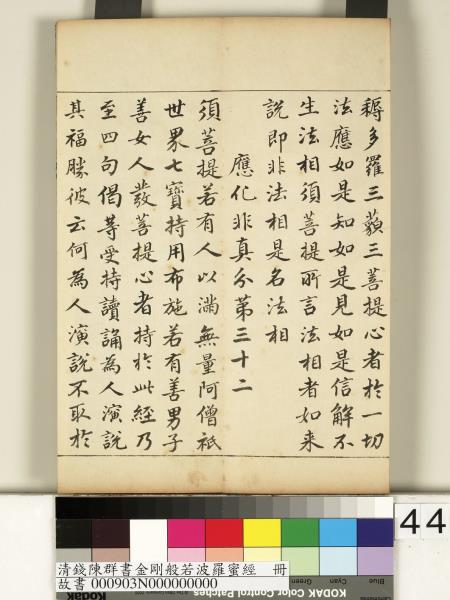 耨多羅三藐三菩提心者於一切
法應如是知如是見如是信解不
生法相須菩提所言法相者如来
說即非法相是名法相
應化非真分第三十二
須菩提若有人以滿無量阿僧祇
世界七寶持用布施若有善男子
善女人發菩提心者持於此經乃
至四句偈等受持讀誦為人演說
其福勝彼云何為人演說不取於
44
清錢陳群書金剛般若波羅蜜經 冊
故書 000903N000000000
Blue
Cyan
Green
Kodak
KODAK Color Control Patches